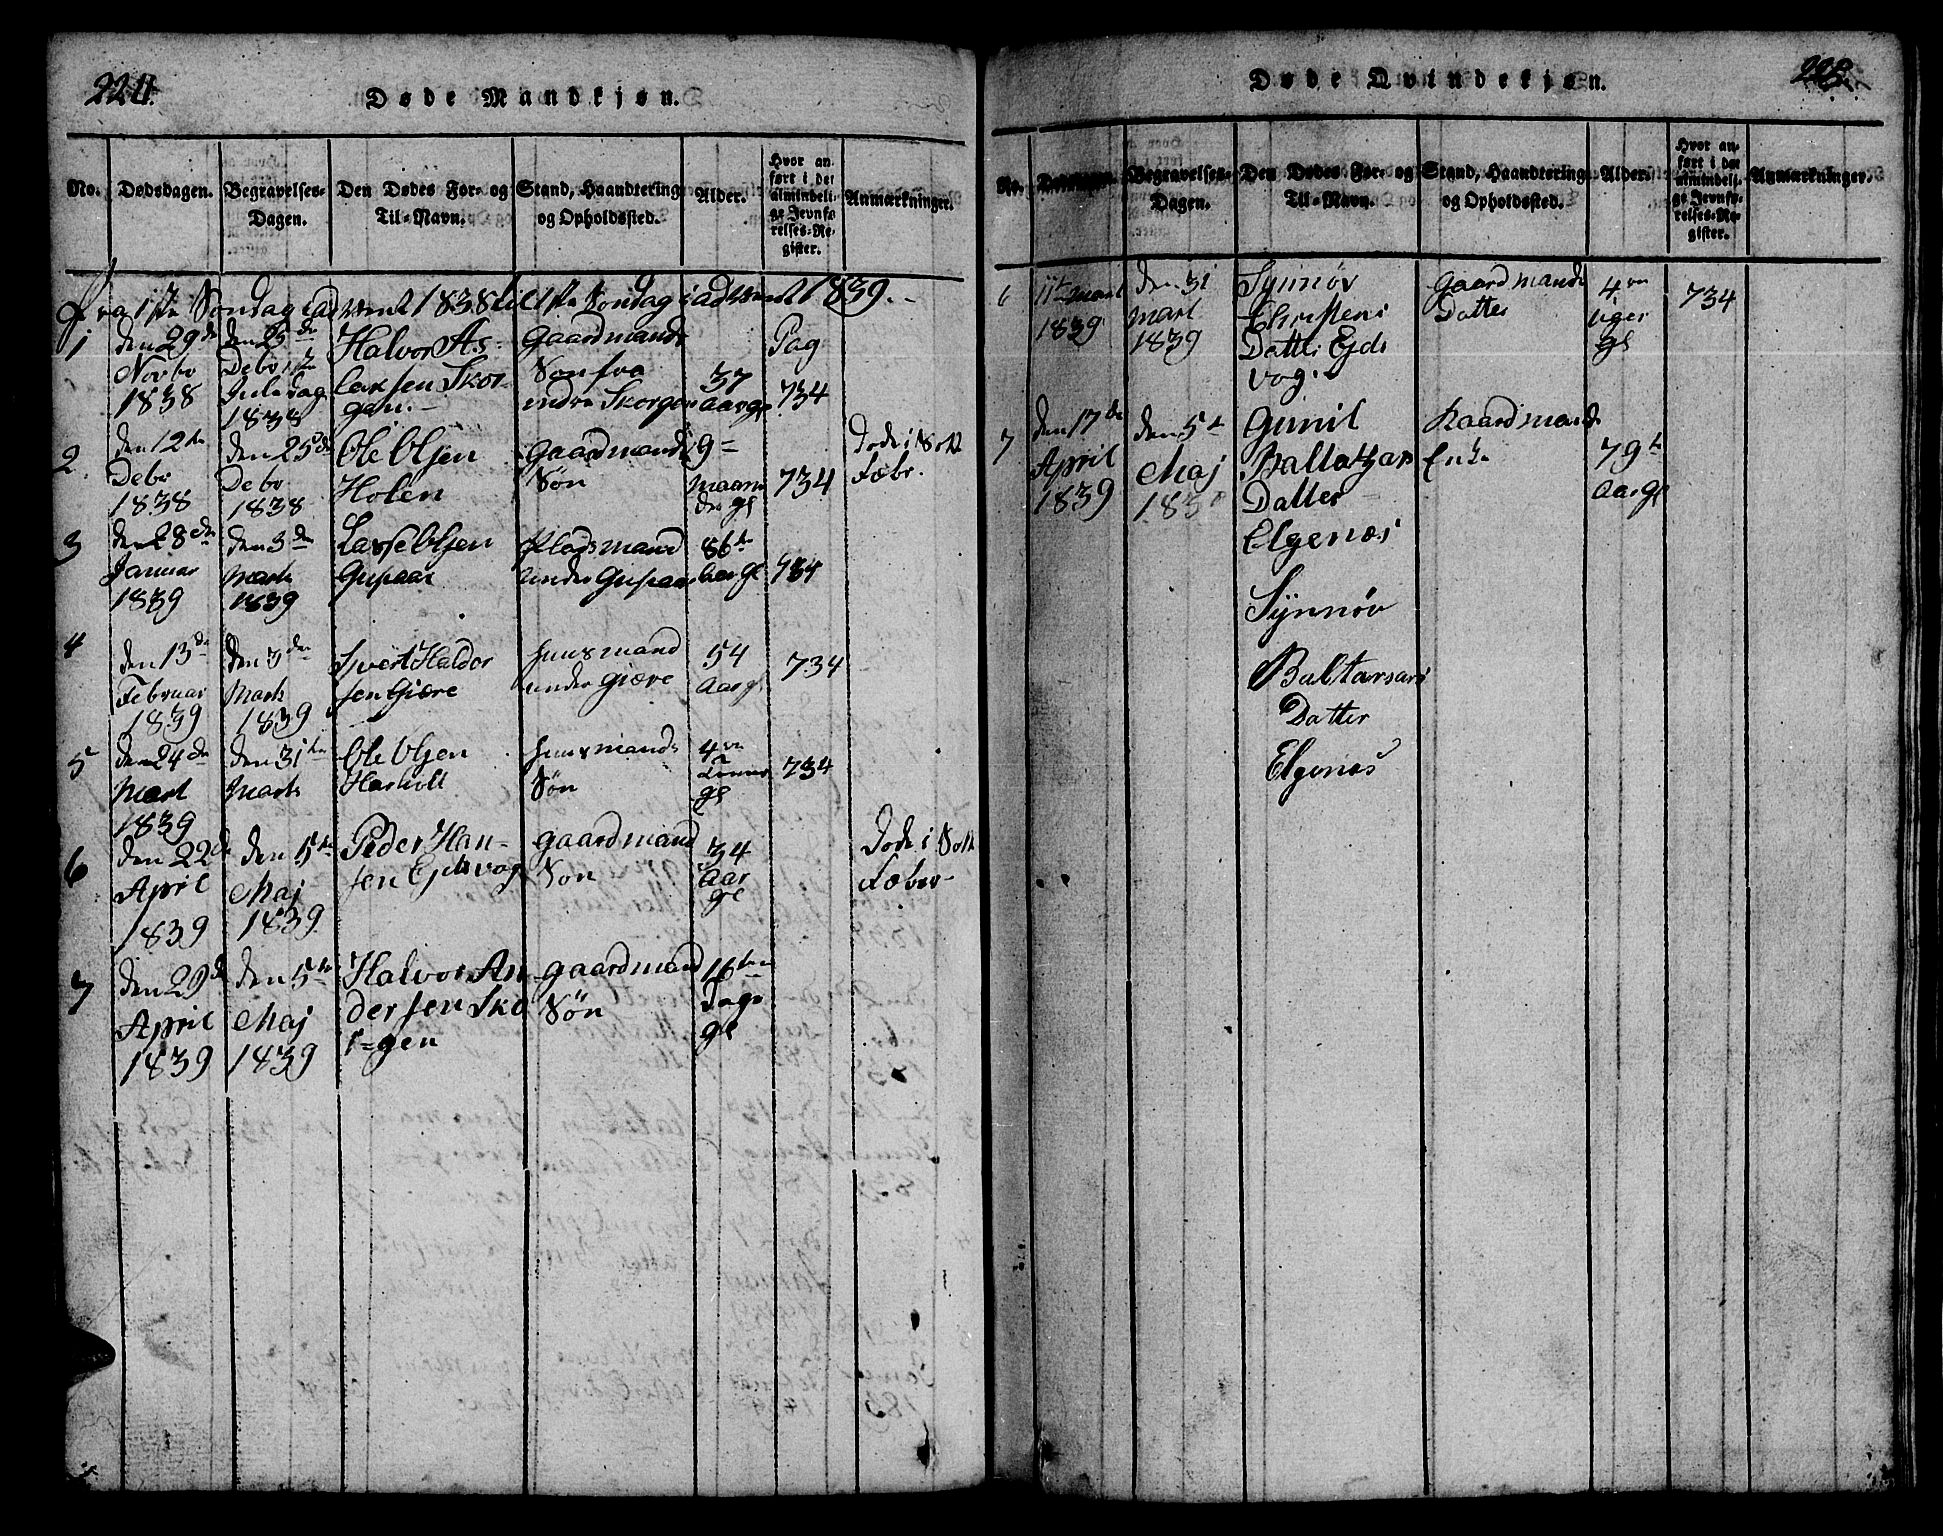 224.
Døde Mandkjøn.
No.
Dødsdagen.
Begravelses-
Dagen.
Den Dødes For- og
Til-Navn.
Stand, Haandtering
og Opholdssted.
Alder.
Hvor an-
ført i det
almindeli-
ge Jevnfø-
relses-Re-
gister.
Anmærkninger.
Fra 1ste Søndag i Advent 1838 til 1ste Søndag i advent 1839.
1
den 29de
Novbr
1838
den 25de
Debr
Juledag
1838
Halvor As-
laksen Skor-
gen.
Gaardmands
Søn fra
indre Skorgen
37
Aar gl
Pag
734
2
den 12te
Debr
1838
den 25de
Debr
1838
Ole Olsen
Holen
Gaardmands
Søn
9
maane
der gl
734
Døde i Sott
Febr.
3
den 28de
Januar
1839
den 3de
Marts
1839
Lasse Olsen
Gusiaar
Pladsmand
under
86
Aar gl
734
4
den 13de
Februar
1839
den 3de
Marts
1839
Sivert Haldor
sen Giære
Huusmand
under Giære
54
Aar gl
734
5
den 24de
Mart
1839
den 31te
Marts
Ole Olsen
Harholt
Huusmands
Søn
4re
gl
734
6
den 22de
April
1839
den 5te
Maj
1839
Peder Han-
sen Ejdsvog
gaardmand
Søn
34
Aar
gl
Døde i Sott
Febr
7
den 29de
April
1839
den 5te
Maj
1839
Halvor An
dersen Sko
r=gen
gaardmand
Søn
16ten
Dage
gl
225.
Døde Qvindekjøn.
No.
Dødsdagen.
Begravelses-
Dagen.
Den Dødes For- og
Til-Navn.
Stand, Haandtering
og Opholdssted.
Alder.
Hvor an-
ført i det
almindeli-
ge Jevnfø-
relses-Re-
gister.
Anmærkninger.
6
11te Mart
1839
den 31
Mart
1839
Synnøv
Christens
Datter Ejds
vog.
Gaardmands
Datter
4re
Uger
gl
734
7
den 17de
April
1839
den 5te
Maj
Gunil
Baltatzars
Datter
Elgenæs
Gaardmands
Enke
79
Aar gl
Synnøv
Baltarsars
Datter
Elgenæs